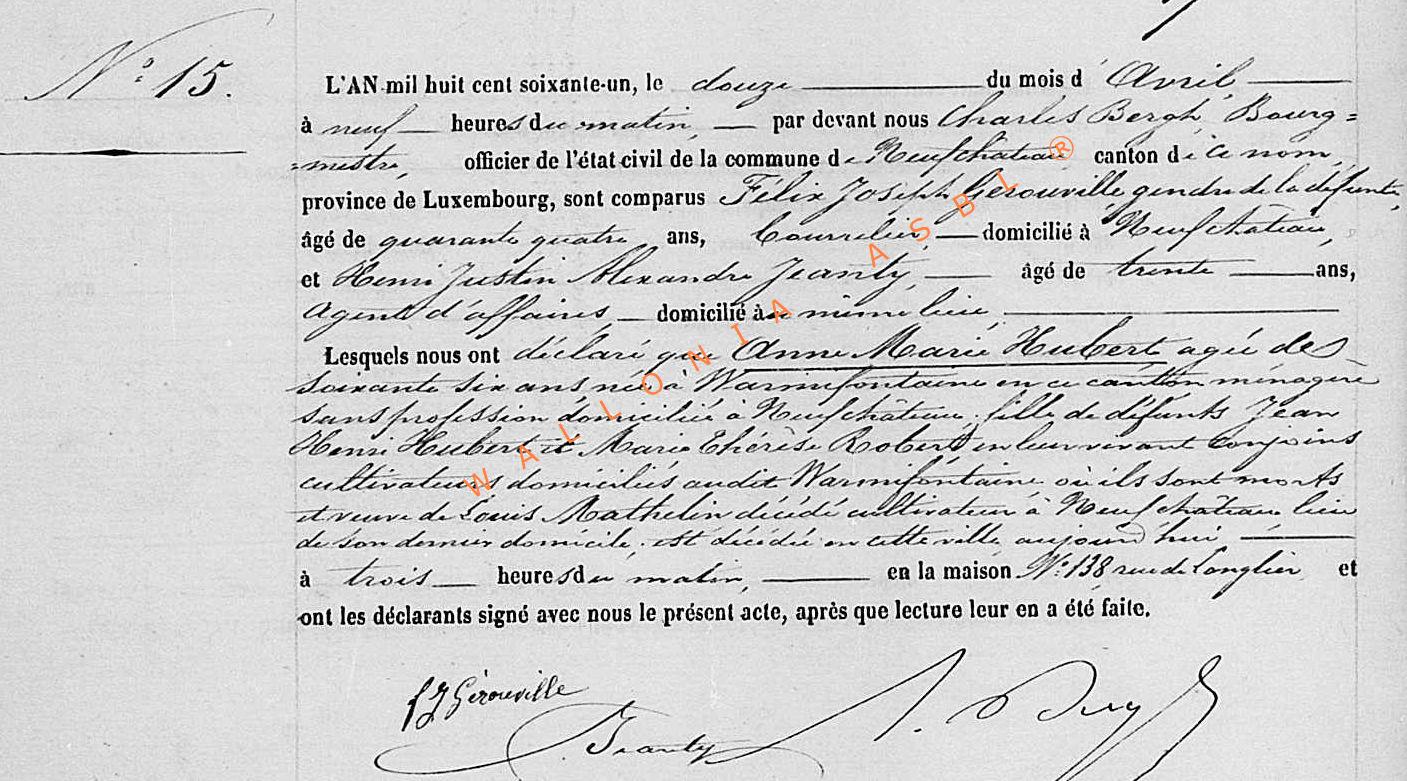 N° 15.
L'AN mil huit cent soixante-un, le douze du mois d' Avril
à neuf heures du matin, par devant nous Charles Bergh, Bourg=
=mestre, officier de l'état civil de la commune de Neufchâteau canton de ce nom,
province de Luxembourg, sont comparus Félix Joseph Gérouville, gendre de la défunte,
âgé de quarante quatre ans, Courrelier, domicilié à Neufchâteau,
et Henri Justin Alexandre Jeanty, âgé de trente ans,
Agent d'affaires, domicilié à même lieu,
Lesquels nous ont déclaré que Anne Marie Hubert agée de
soixante six ans née à Warmifontaine en ce canton ménagère
sans profession domiciliée à Neufchâteau, fille de défunts Jean
Henri Hubert et Marie Thérèse Robert en leur vivant conjoins
cultivateurs domiciliés audit Warmifontaine où ils sont morts
et veuve de Louis Mathelin décédé cultivateur à Neufchâteau lieu
de son dernier domicile, est décédée en cette ville aujourd'hui,
à trois heures du matin, en la maison N° 138 rue de Longlier et
ont les déclarants signé avec nous le présent acte, après que lecture leur en a été faite.
fJ Gérouville
Jeanty
WALLONIA ASBL ®